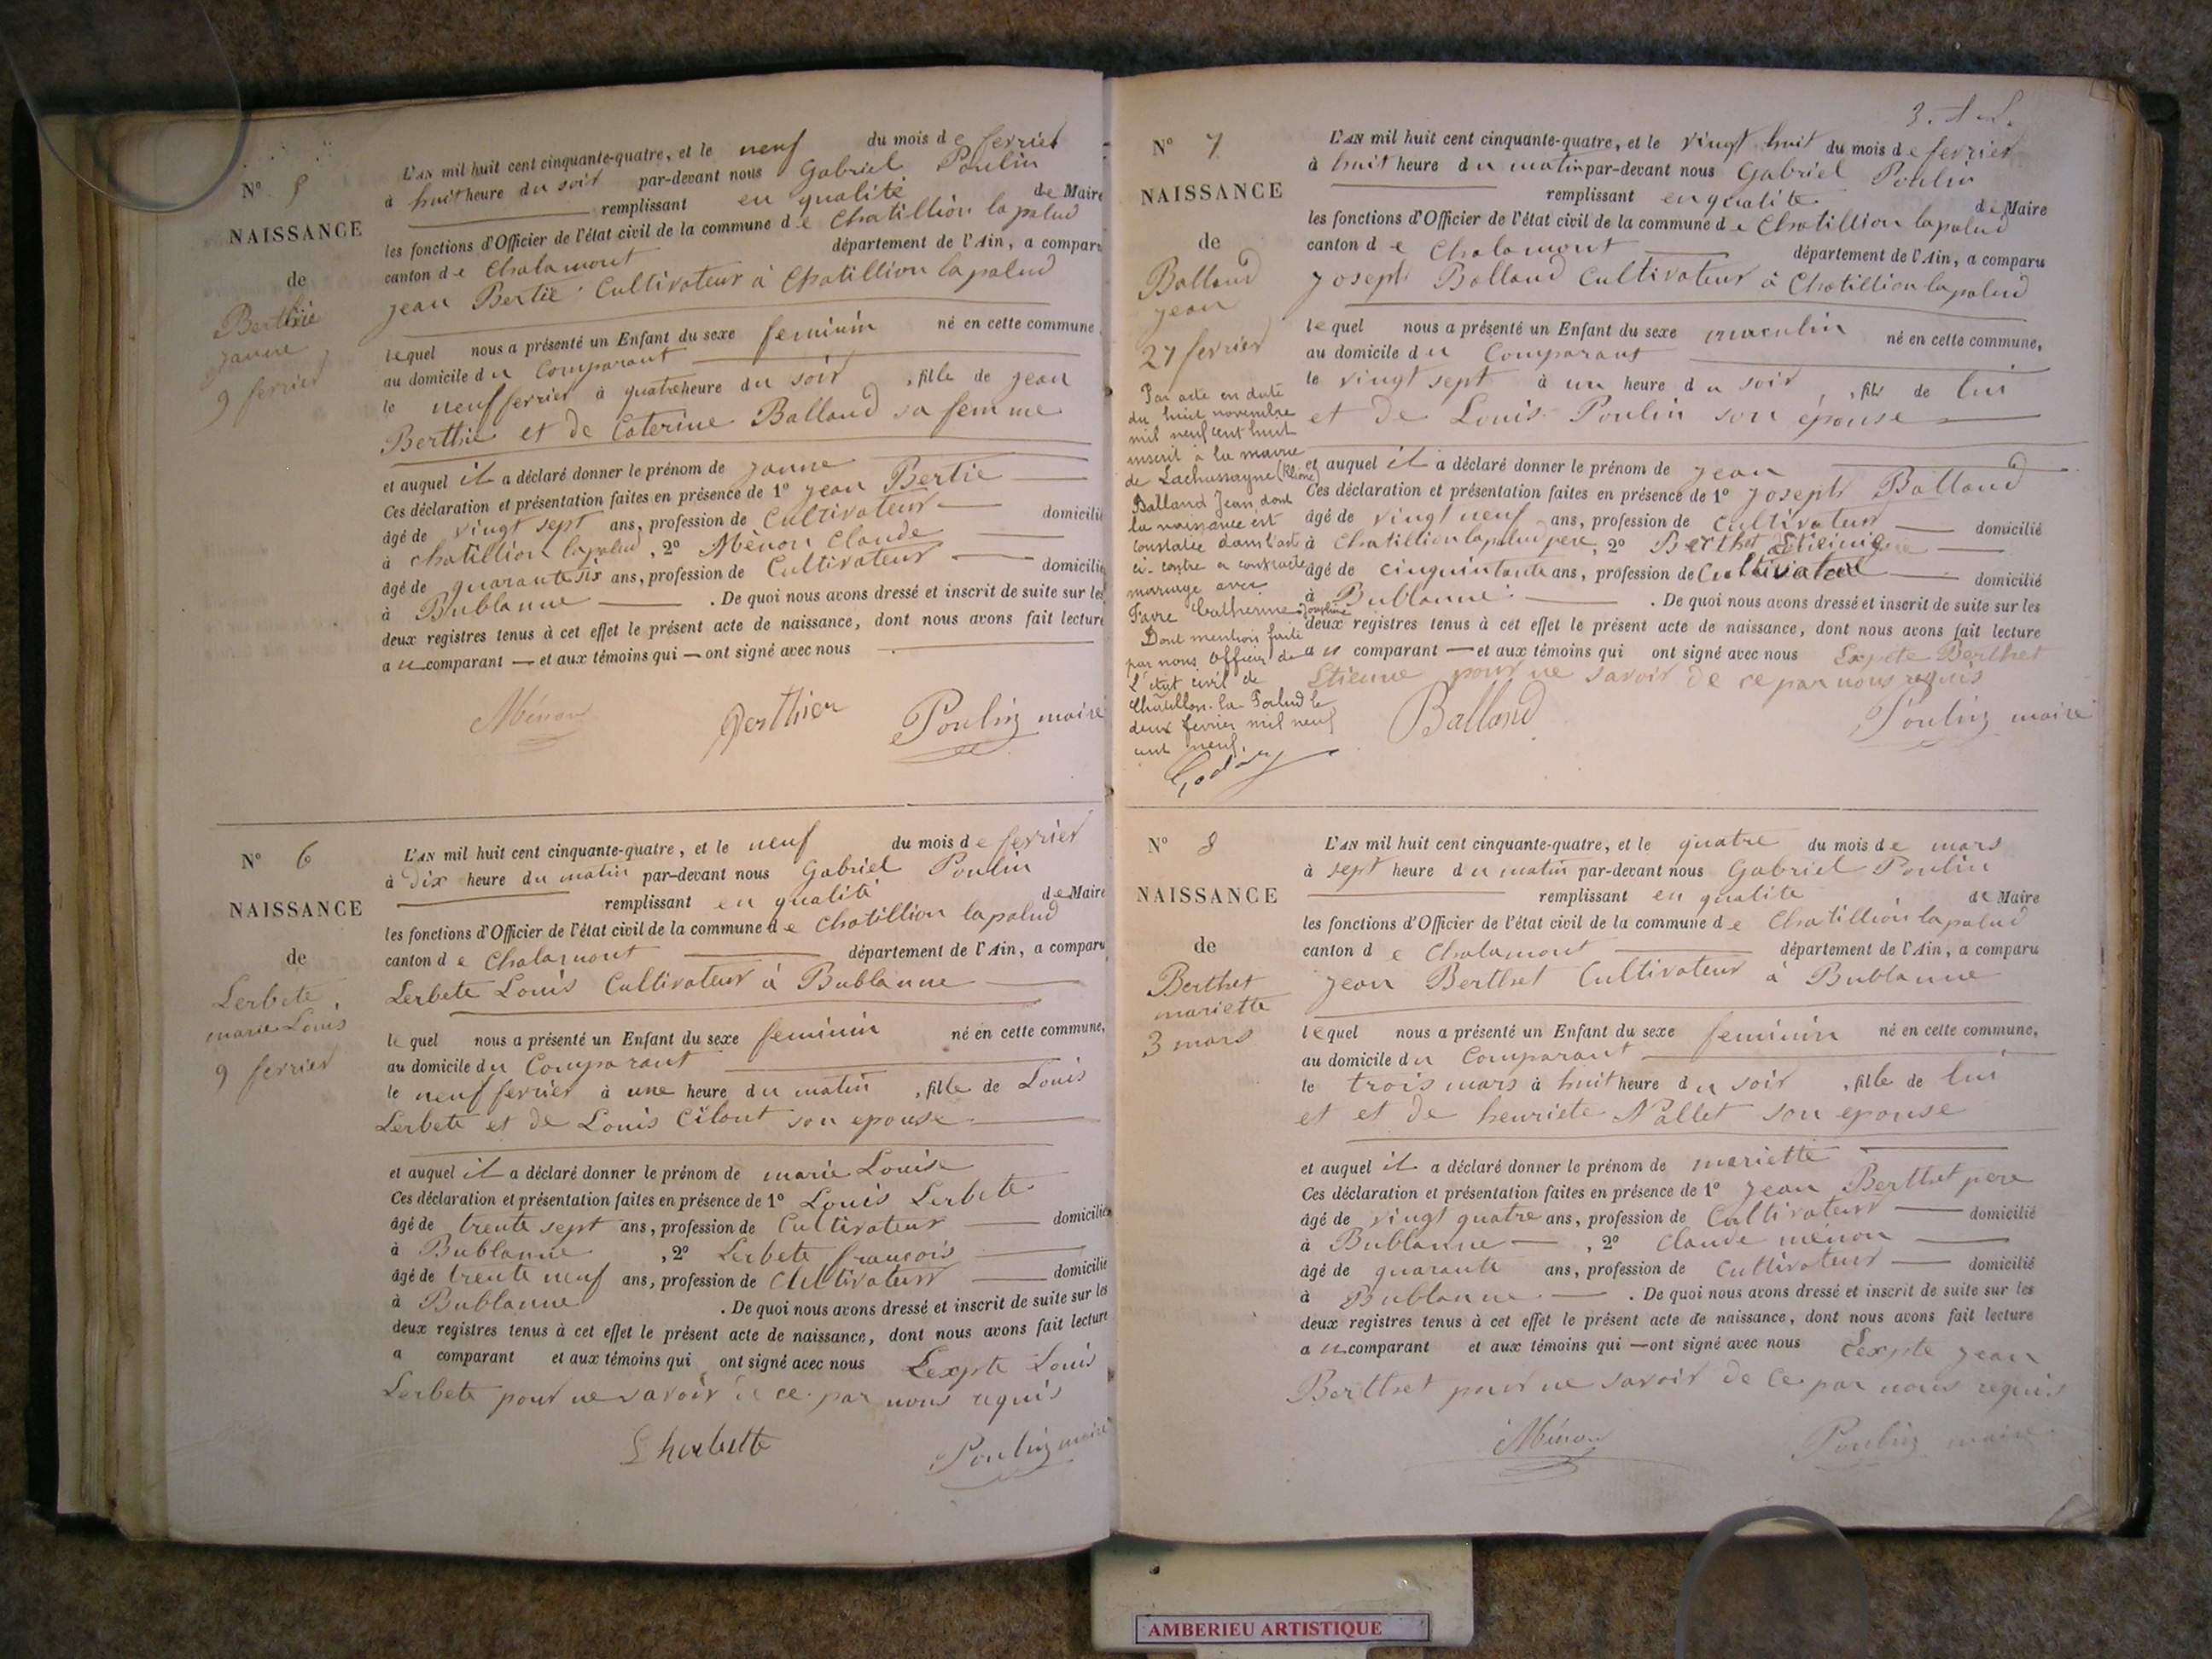 N° 5
NAISSANCE
de
Berthie
janne
9 fevrier
L'AN mil huit cent cinquante-quatre, et le neuf du mois de fevrier
à huit heure du soir par-devant nous Gabriel Poulin
remplissant en qualité de Maire
les fonctions d'Officier de l'état civil de la commune de Chatillion la palud
canton de Chalamont département de l'Ain, a comparu
jean Bertie Cultivateur à Chatillion lapalud
lequel nous a présenté un Enfant du sexe feminin né en cette commune,
au domicile du Comparant
le neuf fevrier à quatre heure du soir, fille de jean
Berthie et de Caterine Balland sa femme
et auquel il a déclaré donner le prénom de janne
Ces déclaration et présentation faites en présence de 1° jean Bertie
âgé de vingt sept ans, profession de Cultivateur domicilié
à chatillion lapalud, 2° Mènon Claude
âgé de quarante six ans, profession de Cultivateur domicilié
à Bublanne. De quoi nous avons dressé et inscrit de suite sur les
deux registres tenus à cet effet le présent acte de naissance, dont nous avons fait lecture
au comparant et aux témoins qui ont signé avec nous
Ménon Berthier Poulin maire
N° 6
NAISSANCE
de
Lerbete
marie Louis
9 fevrier
L'AN mil huit cent cinquante-quatre, et le neuf du mois de fevrier
à Dix heure du matin par-devant nous Gabriel Poulin
remplissant en qualité de Maire
les fonctions d'Officier de l'état civil de la commune de Chatillion lapalud
canton de Chalamont département de l'Ain, a comparu
Lerbete Louis Cultivateur à Bublanne
lequel nous a présenté un Enfant du sexe feminin né en cette commune,
au domicile du Comparant
le neuf fevrier à une heure du matin, fille de Louis
Lerbete et de Louis Cilout son epouse
et auquel il a déclaré donner le prénom de marie Louise
Ces déclaration et présentation faites en présence de 1° Louis Lerbete
âgé de trente sept ans, profession de Cultivateur domicilié
à Bublanne, 2° Lerbete francois
âgé de trente neuf ans, profession de Cultivateur domicilié
à Bublanne. De quoi nous avons dressé et inscrit de suite sur les
deux registres tenus à cet effet le présent acte de naissance, dont nous avons fait lecture
a comparant et aux témoins qui ont signé avec nous Lexpte Louis
Lerbete pour ne savoir de ce par nous requis
Lherbette Poulin maire
N° 7
NAISSANCE
de
Balland
jean
27 fevrier
Par acte en date
du huit novembre
mil neuf cent huit
inscrit à la mairie
de Lachassagne (Rhône)
Balland Jean, dont
la naissance est
constatée dans l'acte
ci-contre a contracté
mariage avec
Favre Catherine Josephine
Dont mention faite
par nous Officier de
L'état civil de
Châtillon-la-Palud le
deux fevrier mil neuf
cent neuf.
L'AN mil huit cent cinquante-quatre, et le vingt huit du mois de fevrier
à huit heure du matin par-devant nous Gabriel Poulin
remplissant en qualité de Maire
les fonctions d'Officier de l'état civil de la commune de Chatillion lapalud
canton de Chalamont département de l'Ain, a comparu
joseph Balland Cultivateur à Chatillion lapalud
lequel nous a présenté un Enfant du sexe masculin né en cette commune,
au domicile du Comparant
le vingt sept à un heure du soir, fils de lui
et de Louis Poulin son épouse
et auquel il a déclaré donner le prénom de jean
Ces déclaration et présentation faites en présence de 1° joseph Balland
âgé de vingt neuf ans, profession de Cultivateur domicilié
à Chatillion lapalud pere, 2° Berthet
âgé de cinquintante ans, profession de Cultivateur domicilié
à Bublanne. De quoi nous avons dressé et inscrit de suite sur les
deux registres tenus à cet effet le présent acte de naissance, dont nous avons fait lecture
au comparant et aux témoins qui ont signé avec nous Expte Berthet
Etienne pour ne savoir de ce par nous requis
Balland Poulin maire
N° 8
NAISSANCE
de
Berthet
mariette
3 mars
L'AN mil huit cent cinquante-quatre, et le quatre du mois de mars
à sept heure du matin par-devant nous Gabriel Poulin
remplissant en qualite de Maire
les fonctions d'Officier de l'état civil de la commune de Chatillion lapalud
canton de Chalamont département de l'Ain, a comparu
jean Berthet Cultivateur à Bublanne
lequel nous a présenté un Enfant du sexe feminin né en cette commune,
au domicile du Comparant
le trois mars à huit heure du soir, fille de lui
et et de henriete Nallet son epouse
et auquel il a déclaré donner le prénom de mariette
Ces déclaration et présentation faites en présence de 1° jean Berthet pere
âgé de vingt quatre ans, profession de Cultivateur domicilié
à Bublanne, 2° Claude mènon
âgé de quarante ans, profession de Cultivateur domicilié
à Bublanne. De quoi nous avons dressé et inscrit de suite sur les
deux registres tenus à cet effet le présent acte de naissance, dont nous avons fait lecture
au comparant et aux témoins qui ont signé avec nous Lexpte jean
Berthet pour ne savoir de ce par nous requis
Ménon Poulin maire
AMBERIEU ARTISTIQUE